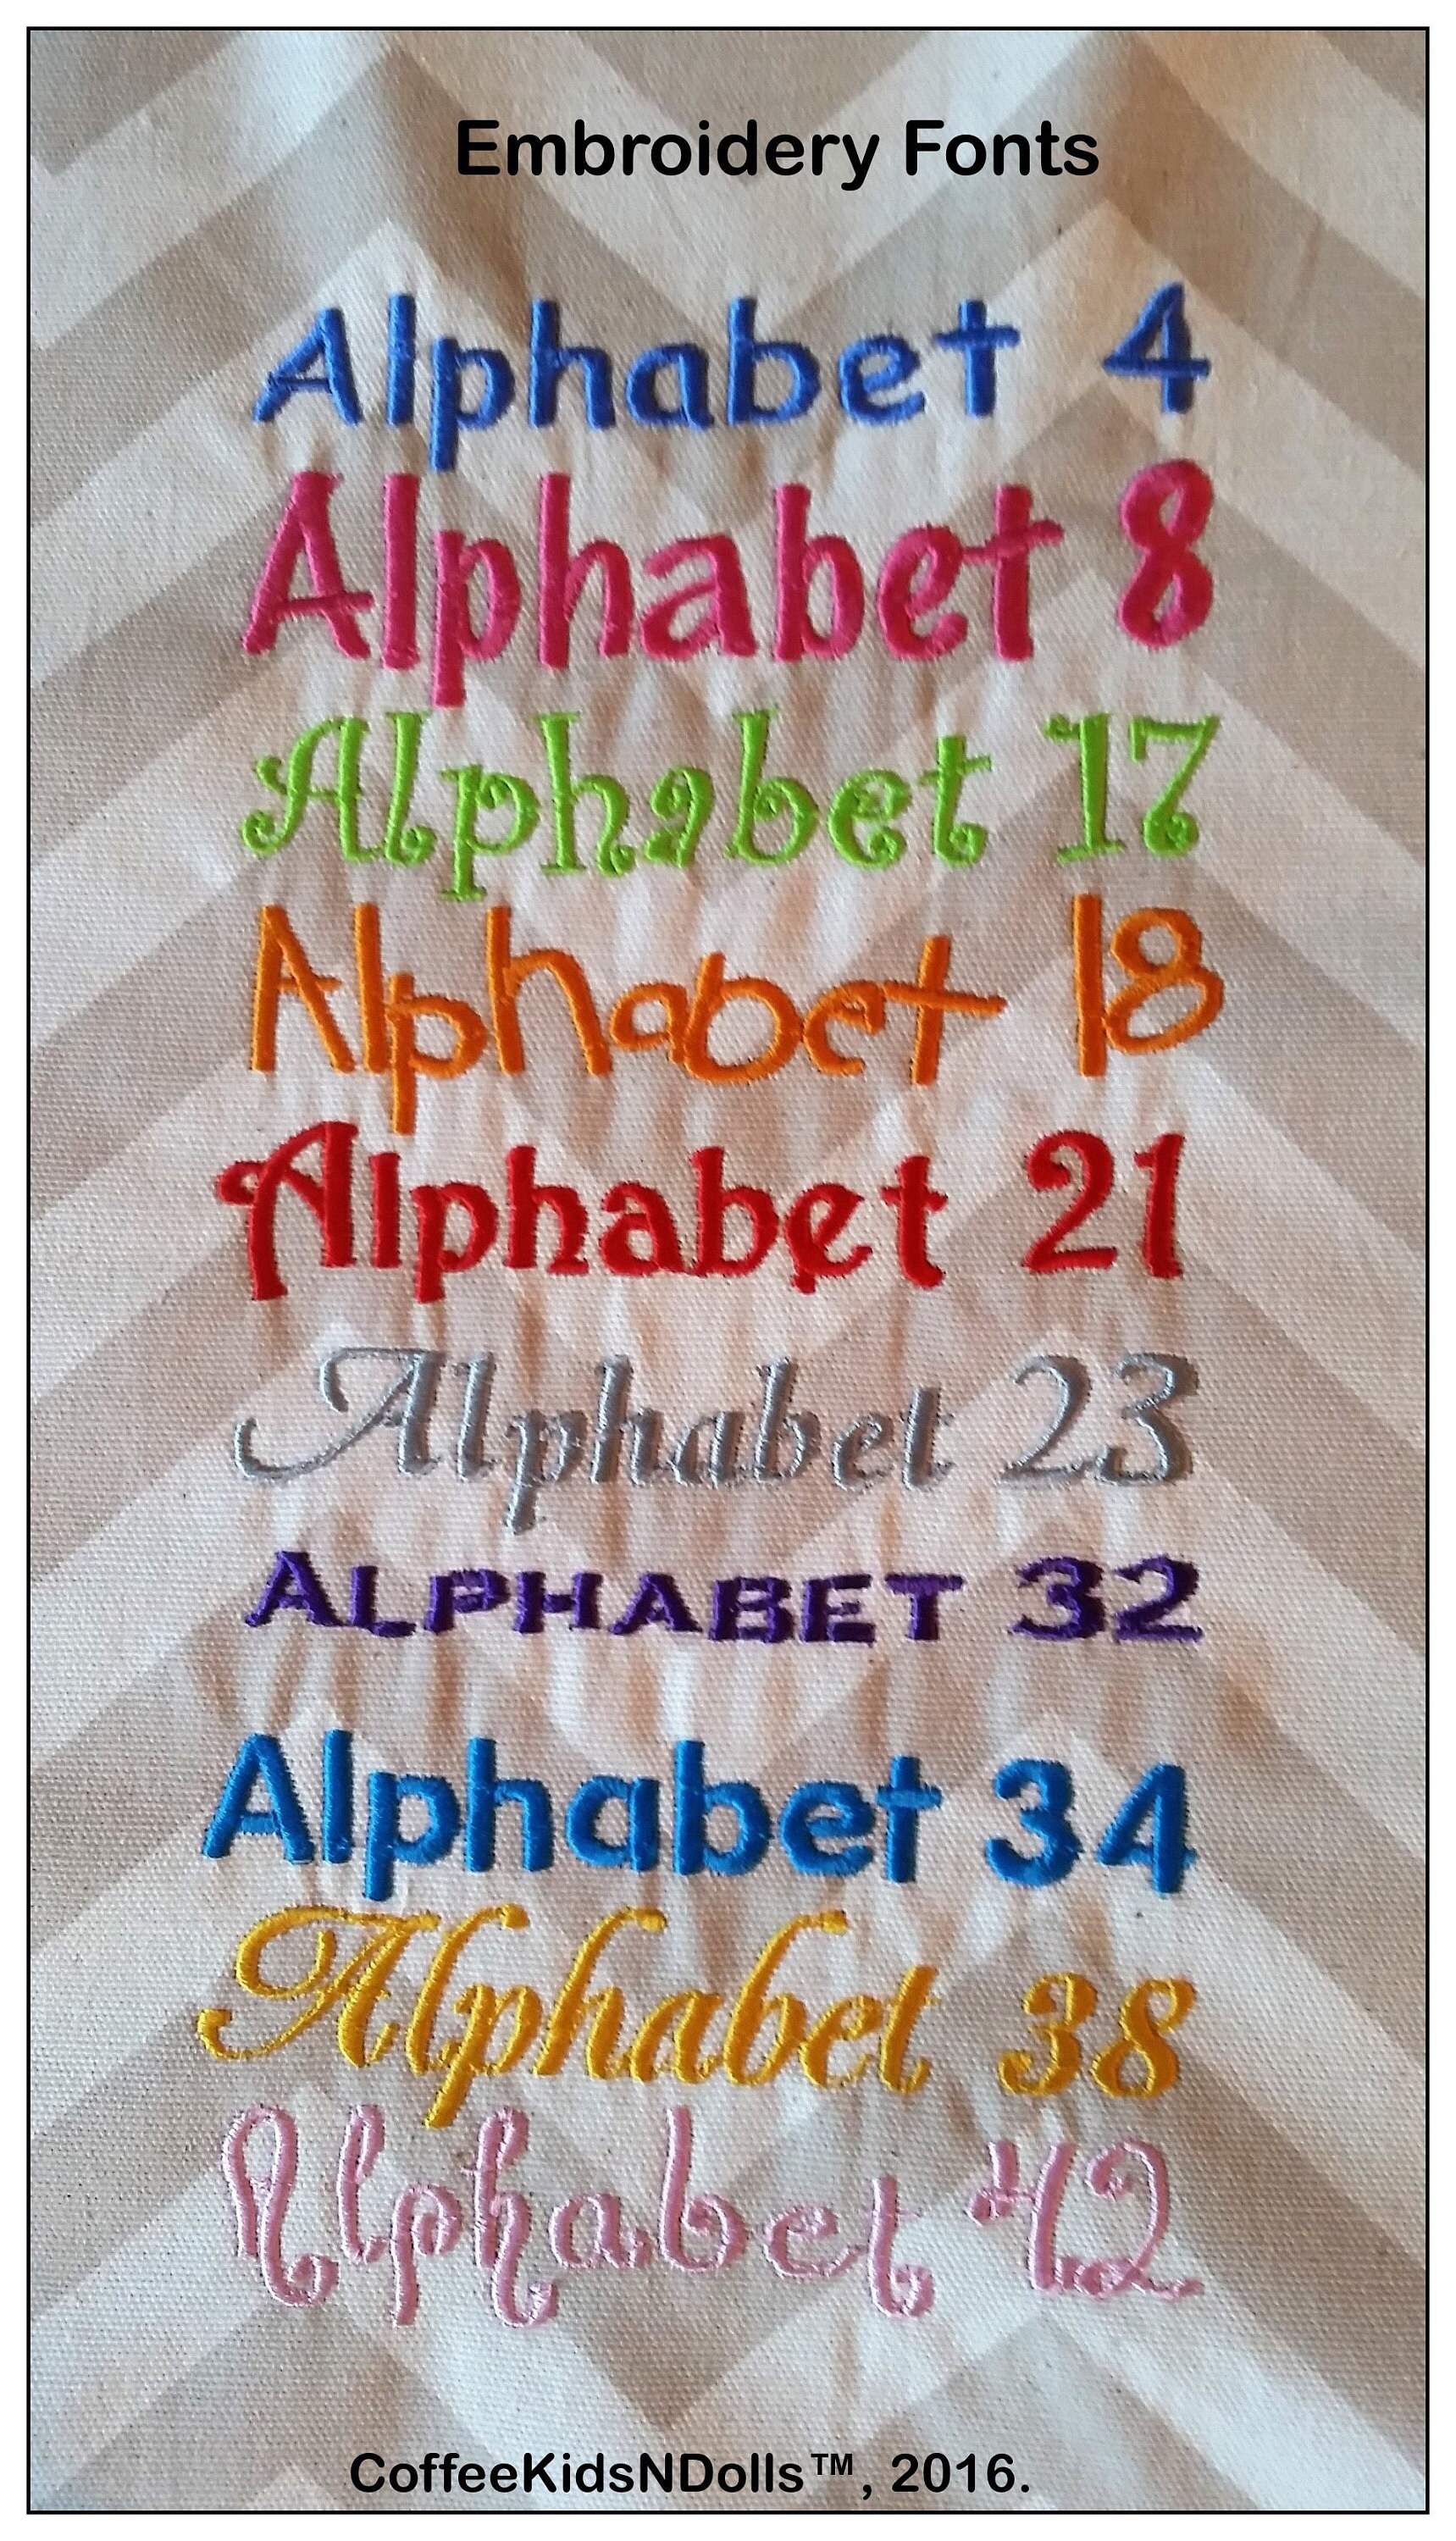 Embroidery Fonts
Alphabet 4
Alphabet 8
Alphabet 17
Alphabet 18
Alphabet 21
Alphabet 23
ALPHABET 32
Alphabet 34
Alphabet 38
Alphabet 42
CoffeeKidsNDolls™, 2016.